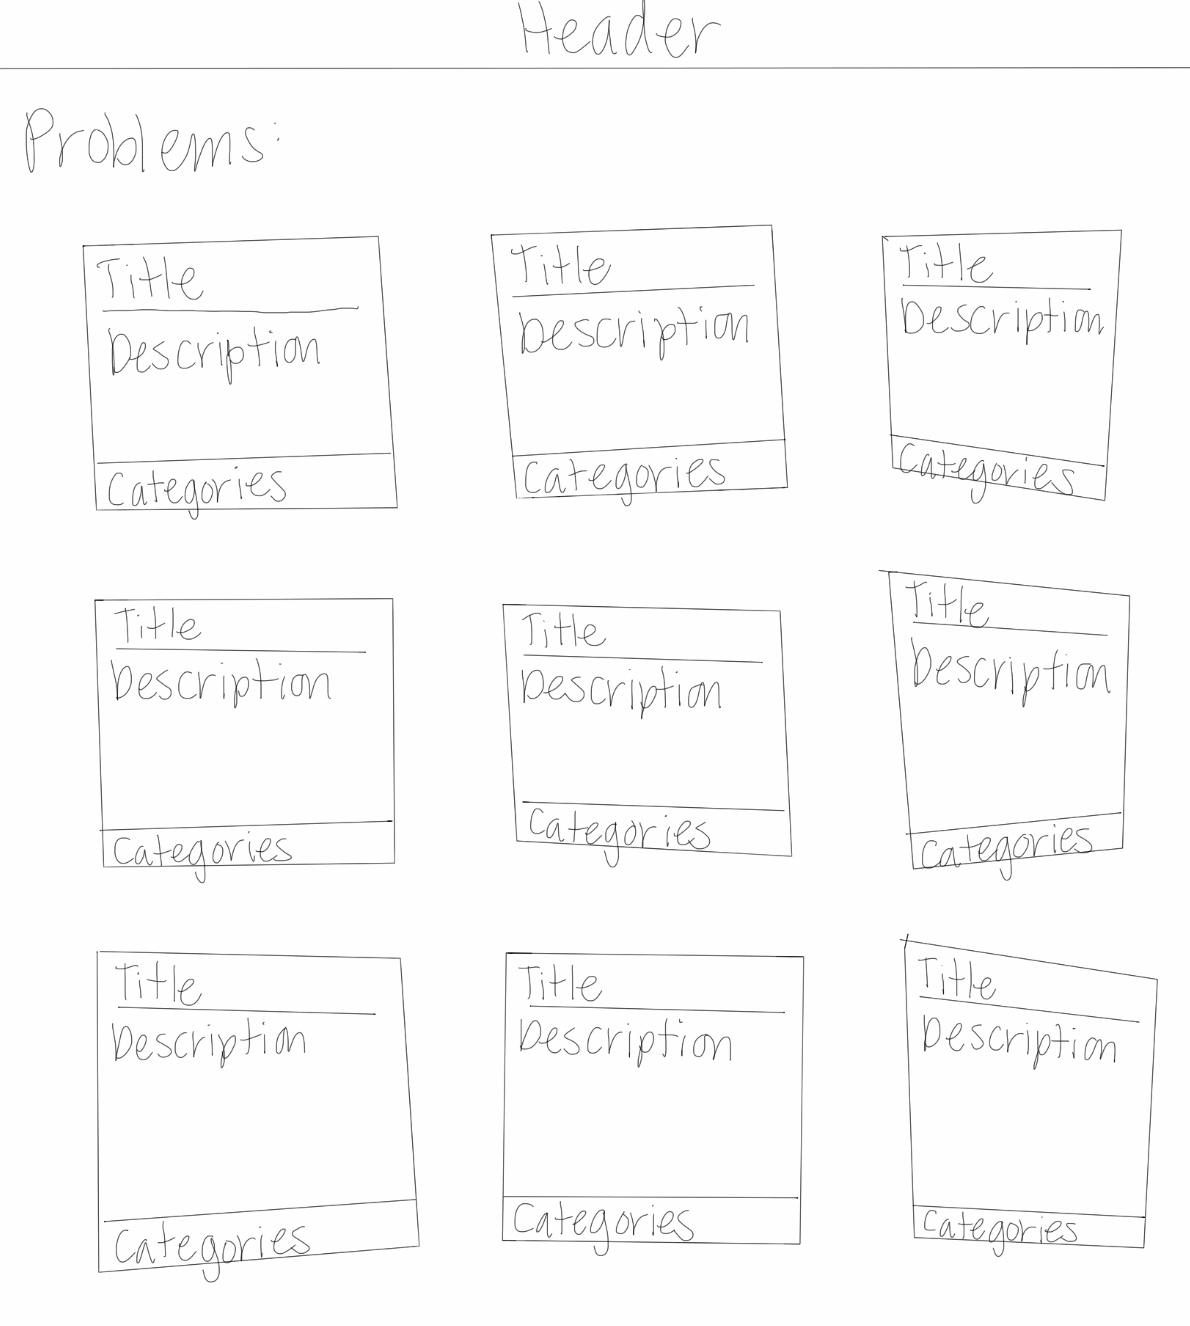 Header
Problems:
Title
Description
Categories
Title
Description
Categories
Title
Description
Categories
Title
Description
Categories
Title
Description
Categories
Title
Description
Categories
Title
Description
Categories
Title
Description
Categories
Title
Description
Categories